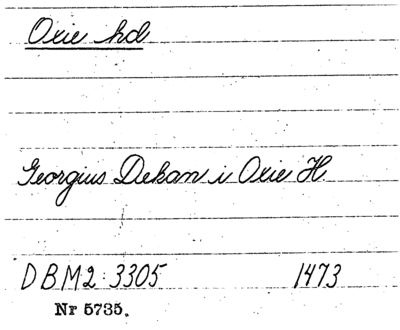 Oxie hd
Georgius Dekan i Oxie H.
DBM2: 3305 1473
Nr 5735.